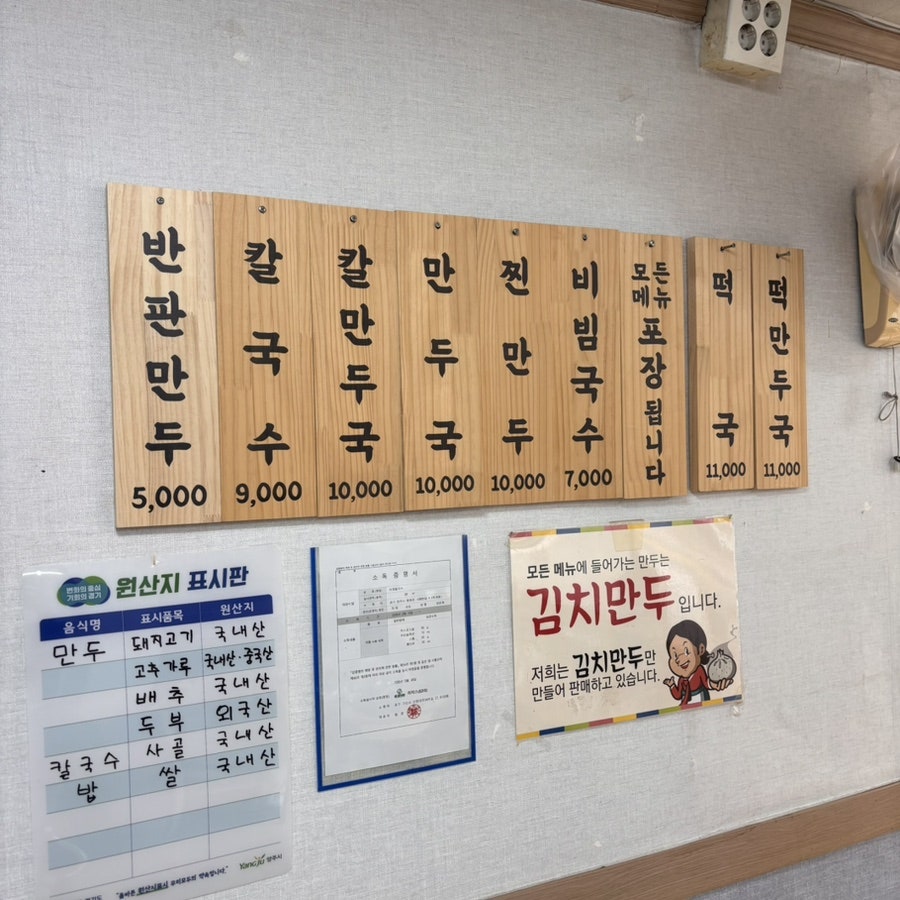 반판만두
5,000
칼국수
9,000
칼만두국
10,000
만두국
10,000
찐만두
10,000
비빔국수
7,000
모든
메뉴
포장됩니다
떡국
11,000
떡만두국
11,000
변화의 중심
기회의 경기
원산지 표시판
음식명 표시품목 원산지
만두 돼지고기 국내산
고추가루 국내산·중국산
배추 국내산
두부 외국산
칼국수 사골 국내산
밥 쌀 국내산
"올바른 원산지표시 우리모두의 약속입니다."
Yangju 양주시
소독증명서
모든 메뉴에 들어가는 만두는
김치만두입니다.
저희는 김치만두만
만들어 판매하고 있습니다.